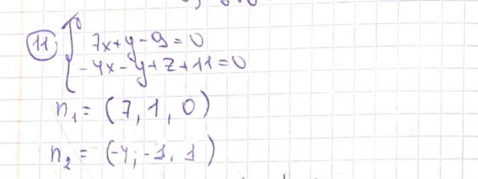 11) 7x+y-9=0
-4x-y+z+11=0
n₁ = (7, 1, 0)
n₂ = (-4; -1, 1)